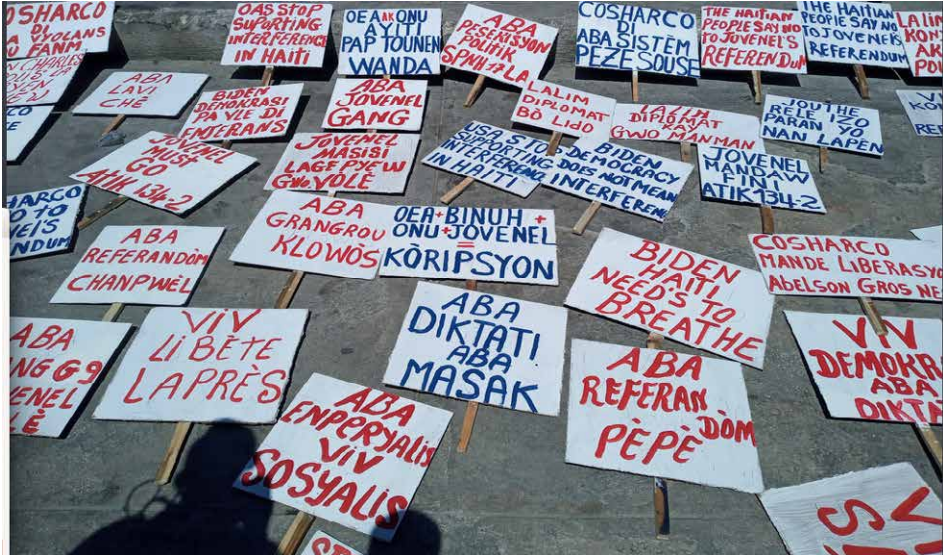 COSHARCO
DI
VYOLANS
FANM
OAS STOP
SUPORTING
INTERFERENCE
IN HAITI
OEA AK ONU
AYITI
PAP TOUNEN
WANDA
ABA
POLITIK
COSHARCO
DI
ABA SISTÈM
PEZE SOUSE
THE HAITIAN
PEOPLE SAY NO
TO JOVENEL'S
REFERENDUM
THE HAITIAN
PEOPLE SAY NO
TO JOVENEL'S
REFERENDUM
LALIM
ABA
LAVI
CHÈ
BIDEN
DEMOKRASI
PA VLE DI
ENTERANS
ABA
JOVENEL
GANG
LALIM
DIPLOMAT
BÒ LIDO
LALIM
DIPLOMAT
KAY
GWO MANMAN
JOUTHE
RELE IZO
PARAN YO
NAN LAPEN
JOVENEL
MUST
GO
ATIK 134-2
JOVENEL
MASISI
LAGE PYEW
GWO VOLÈ
USA STOP
SUPORTING
INTERFERENCE
IN HAITI
BIDEN
DEMOCRACY
DOES NOT MEAN
INTERFERENC
JOVENEL
MANDAW
FINI
ATIK 134-2
HARCO
TO
NEL'S
NDUM
ABA
REFERANDÒM
CHANPWÈL
ABA
GRANGROU
KLOWÒS
OEA+BINUH+
ONU+JOVENEL
=
KÒRIPSYON
BIDEN
HAITI
NEED'S TO
BREATHE
COSHARCO
MANDE LIBERASYO
ABELSON GROS NE
ABA
NG G9
VENEL
LÈ
VIV
LIBÈTE
LAPRÈS
ABA
DIKTATI
ABA
MASAK
ABA
REFERAN
DÒM
PÈPÈ
VIV
DEMOKRA
ABA
DIKTA
ABA
ENPERYALIS
VIV
SOSYALIS